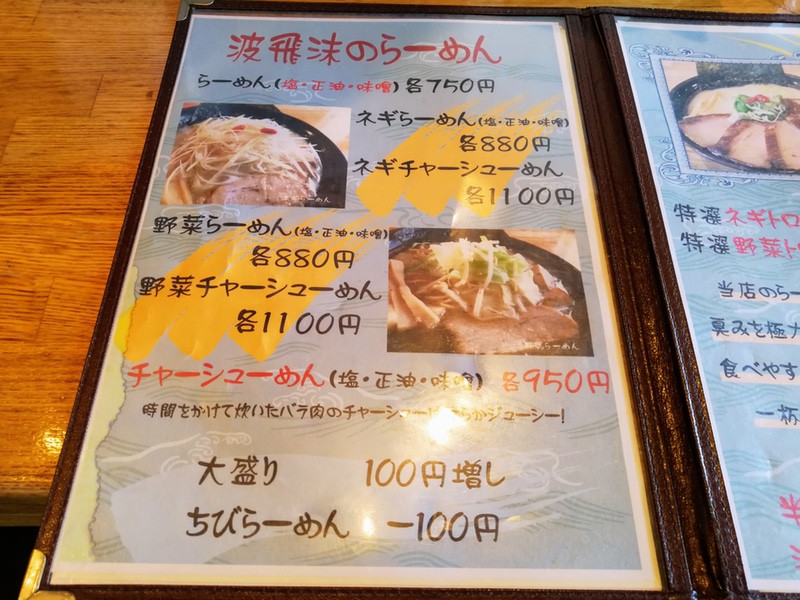 波飛沫のらーめん
らーめん(塩・正油・味噌)各750円
ネギらーめん(塩・正油・味噌)
各880円
ネギチャーシューめん
各1100円
野菜らーめん(塩・正油・味噌)
各880円
野菜チャーシューめん
各1100円
チャーシューめん(塩・正油・味噌) 各950円
時間をかけて炊いたバラ肉のチャーシュー
らかジューシー!
大盛り 100円増し
ちびらーめん -100円
特選ネギトロ
特選野菜ト
当店のらー
食べやす
一杯